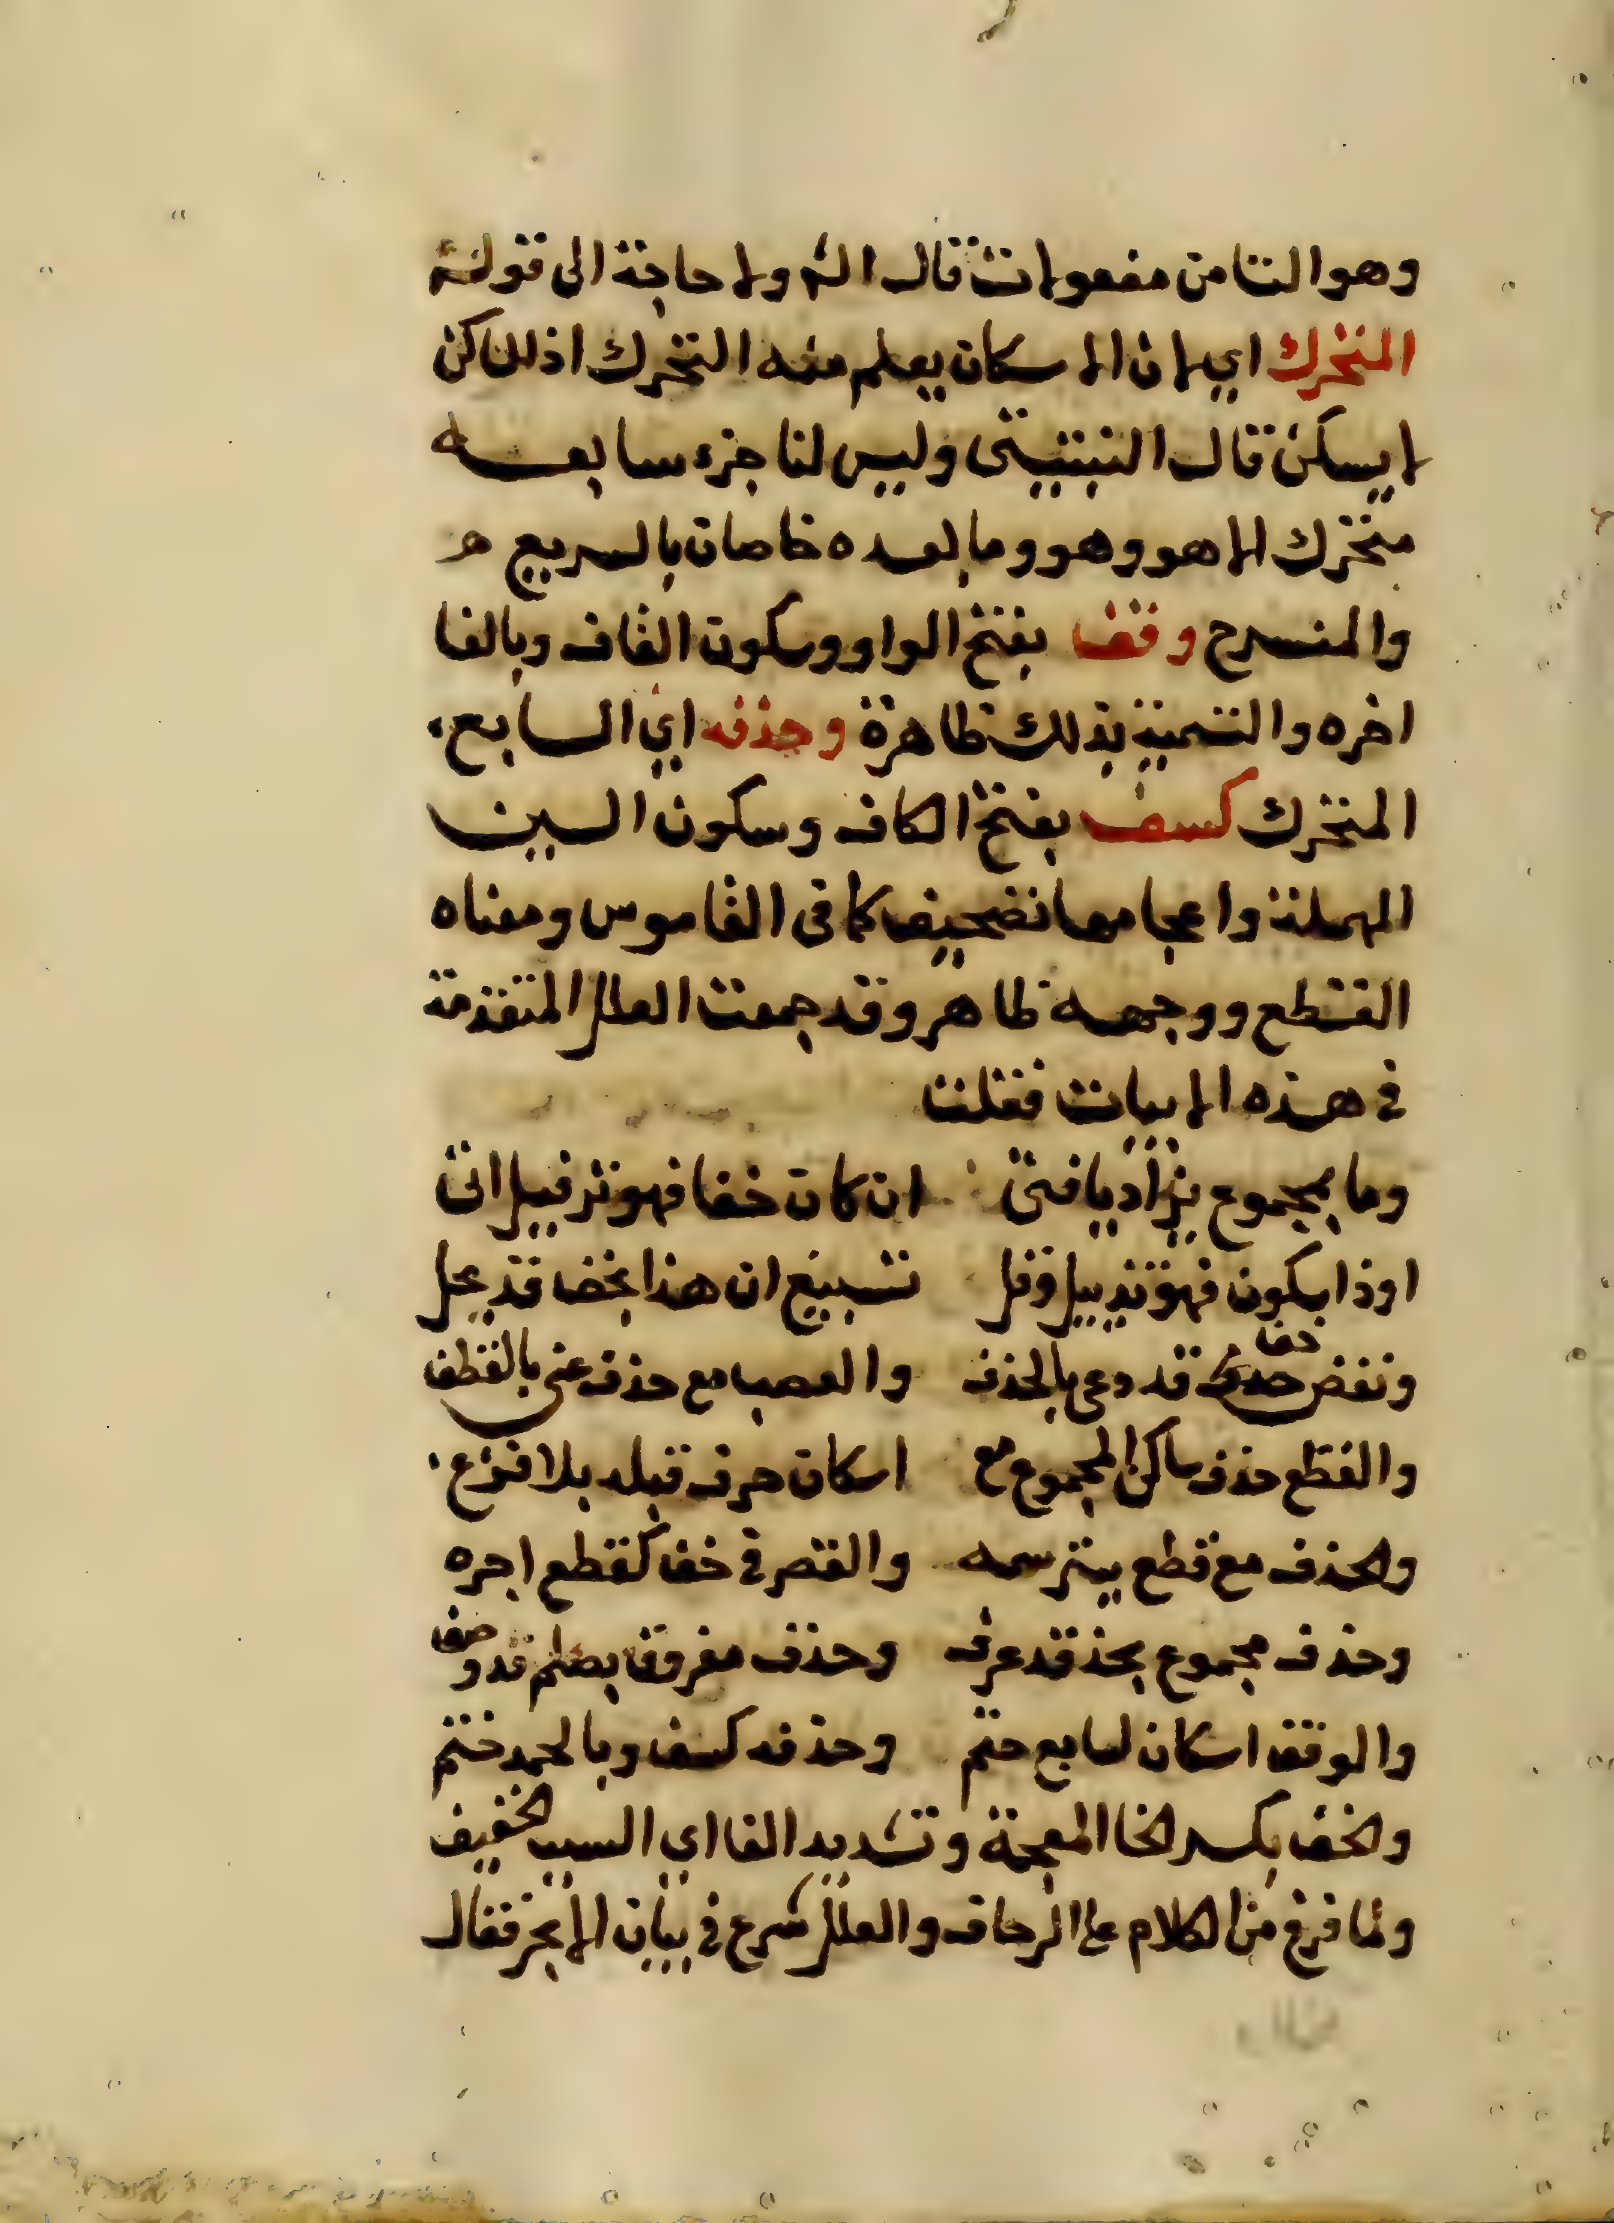 وهو التا من مفعولات قال الش ولا حاجة الى قوله
المتحرك اي لان الاسكان يعلم منه التحرك اذ الساكن
لا يسكن قال النبتيتى وليس لنا جزء سابعه
متحرك الا هو وهو وما بعده خاصان بالسريع
والمنسرح وقف بفتح الواو وسكون القاف وبالفا
اخره والتسمية بذلك ظاهرة وحذفه اي السابع
المتحرك كسف بفتح الكاف وسكون السين
المهملة واعجامها تصحيف كما فى القاموس ومعناه
القطع ووجهه ظاهر وقد جمعت العلل المتقدمة
في هذه الابيات فقلت
وما بمجموع يزاد يا فتى ان كان خفا فهو ترفيل اتى
او ذا سكون فهو تذييل وقل تسبيغ ان هذا بخف قد يحل
ونقص خف قد دعى بالحذف والعصب مع حذف عنى بالقطف
والقطع حذف ساكن المجموع مع اسكان حرف قبله بلا فزع
والحذف مع قطع ببتر سمه والقصر في خف كقطع اجره
وحذف مجموع بحذ قد عرف وحذف مفروق بصلم قد وصف
والوقف اسكان لسابع حتم وحذفه كسف وبالحمد ختم
والخف بكسر الخا المعجمة وتشديد الفا اي السبب الخفيف
ولما فرغ من الكلام على الزحاف والعلل شرع في بيان الابحر فقال